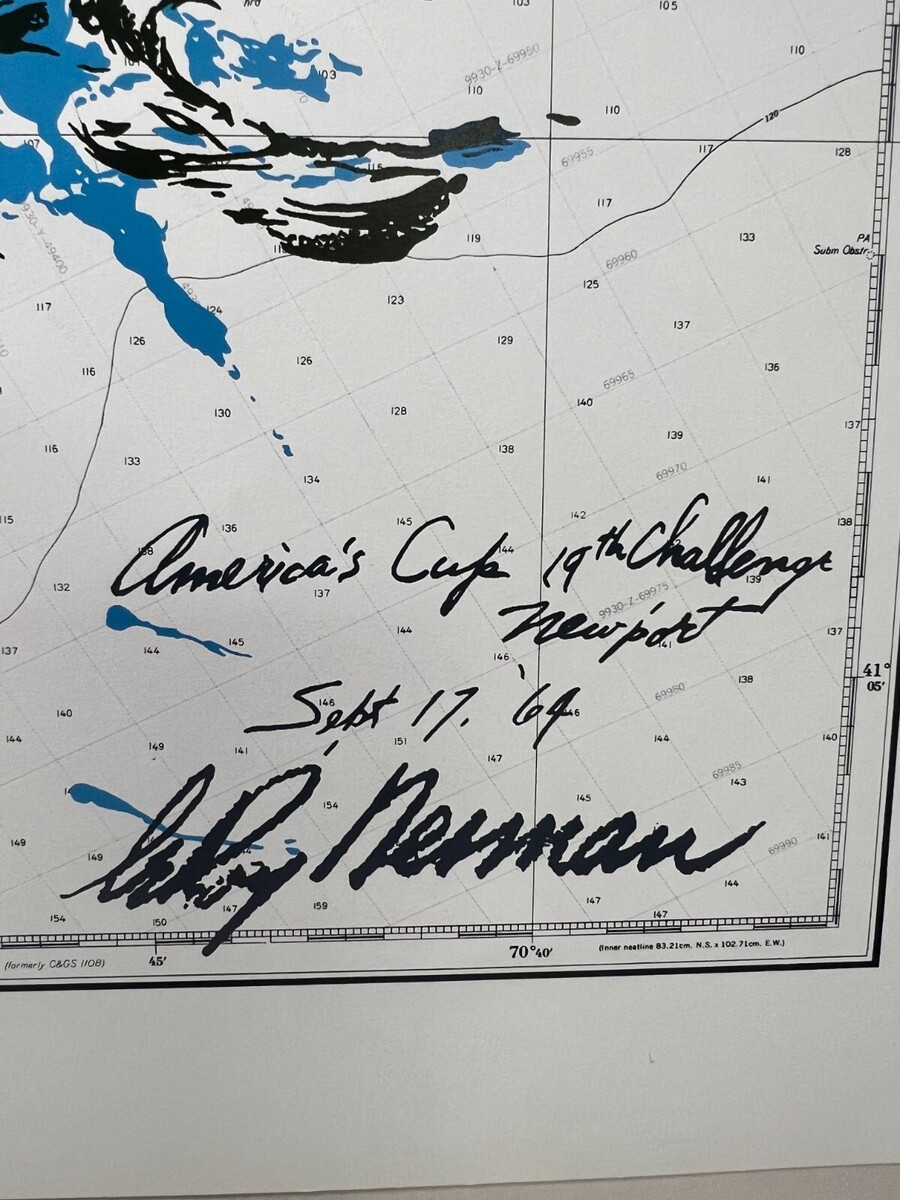 103 105
103 9930-Z-69950 110
110
110
107 69955 117 120 128
115
117
119 133 PA
Subm Obstr.
69960
117 123 125
124
126 129 137
116 126 136
69965
130 128 140
139 137
116 133 138 69970
134 141
115 145 142 138
136
138 144
America's Cup 19th Challenge
132 137 139
9930-Z-69975
Newport
144 145 144 141 137
137 146
138 41°
05'
69980
Sept 17, '64
140 146 146
144 149 141 151 144 140
147
69985
143
154 145
LeRoy Neiman
149 149 141
69990
144
154 150 147 159 147 147
(formerly C&GS 1108) 45' 70°40' (Inner neatline 83.21cm. N.S. x 102.71cm. E.W.)